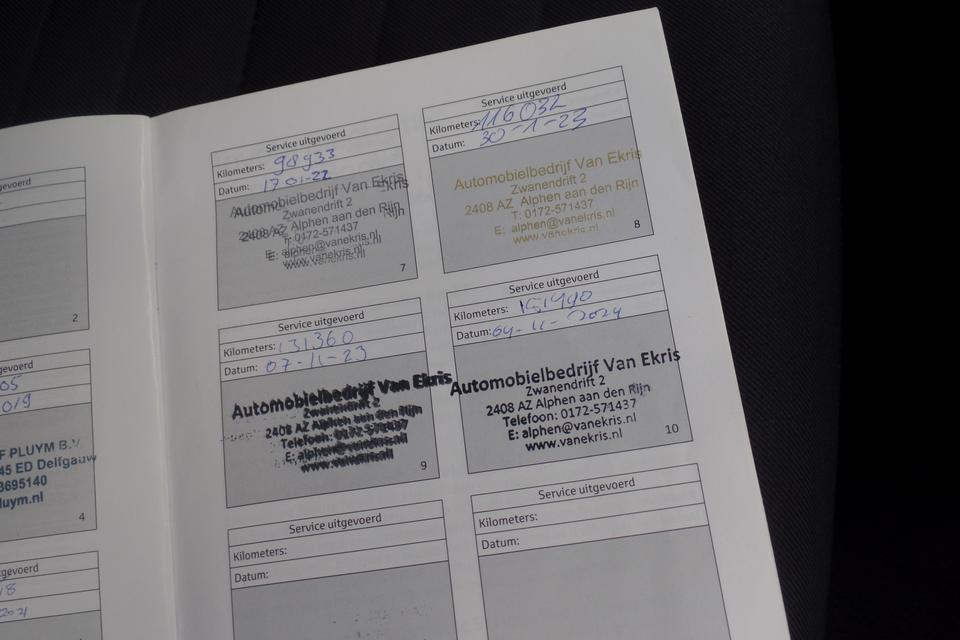 uitgevoerd
2
uitgevoerd
05
019
F PLUYM B.V.
45 ED Delfgauw
3695140
luym.nl
4
uitgevoerd
18
2021
Service uitgevoerd
Kilometers: 98933
Datum: 17 01-22
Automobielbedrijf Van Ekris
Zwanendrift 2
2408 AZ Alphen aan den Rijn
T: 0172-571437
E: alphen@vanekris.nl
www.vanekris.nl
7
Service uitgevoerd
Kilometers: 116032
Datum: 30-1-23
Automobielbedrijf Van Ekris
Zwanendrift 2
2408 AZ Alphen aan den Rijn
T: 0172-571437
E: alphen@vanekris.nl
www.vanekris.nl
8
Service uitgevoerd
Kilometers: 131360
Datum: 07-11-23
Automobielbedrijf Van Ekris
Zwanendrift 2
2408 AZ Alphen aan den Rijn
Telefoon: 0172-571437
E: alphen@vanekris.nl
www.vanekris.nl
9
Service uitgevoerd
Kilometers:
Datum: 04-11-2024
Automobielbedrijf Van Ekris
Zwanendrift 2
2408 AZ Alphen aan den Rijn
Telefoon: 0172-571437
E: alphen@vanekris.nl
www.vanekris.nl
10
Service uitgevoerd
Kilometers:
Datum:
Service uitgevoerd
Kilometers:
Datum: